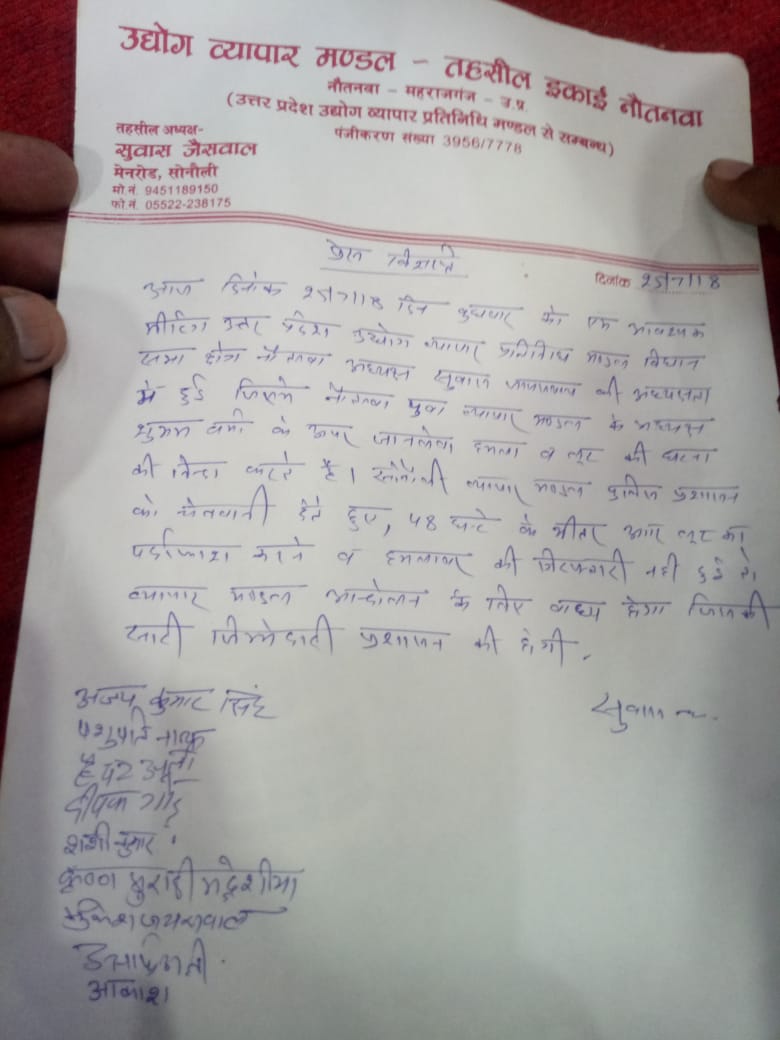 उद्योग व्यापार मण्डल - तहसील इकाई नौतनवा
नौतनवा - महराजगंज - उ.प्र.
(उत्तर प्रदेश उद्योग व्यापार प्रतिनिधि मण्डल से सम्बन्ध)
पंजीकरण संख्या 3956/7778
तहसील अध्यक्ष-
सुवास जैसवाल
मेनरोड, सोनौली
मो.नं. 9451189150
फो.नं. 05522-238175
प्रेस विज्ञप्ति
दिनांक 25/7/18
आज दिनांक 25/7/18 दिन बुधवार को एक आवश्यक
मीटिंग उत्तर प्रदेश उद्योग व्यापार प्रतिनिधि मण्डल विधान
सभा क्षेत्र नौतनवा अध्यक्ष सुवास जायसवाल की अध्यक्षता
में हुई जिसमे नौतनवा युवा व्यापार मण्डल के अध्यक्ष
शुभम वर्मा के ऊपर जानलेवा हमला व लूट की घटना
की निन्दा करते है। सोनौली व्यापार मण्डल पुलिस प्रशासन
को चेतवानी देते हुए, 48 घन्टे के भीतर अगर लूट का
पर्दाफाश करने व हमलावर की गिरफ्तारी नही हुई तो
व्यापार मण्डल आन्दोलन के लिए वाध्य होगा जिसकी
सारी जिम्मेदारी प्रशासन की होगी.
अजय कुमार सिंह
सुवास
पशुपति नाथ
हैदर अली
दीपक
शशी कुमार
कृष्ण मुरारी मद्धेशीया
जयसवाल
आकाश